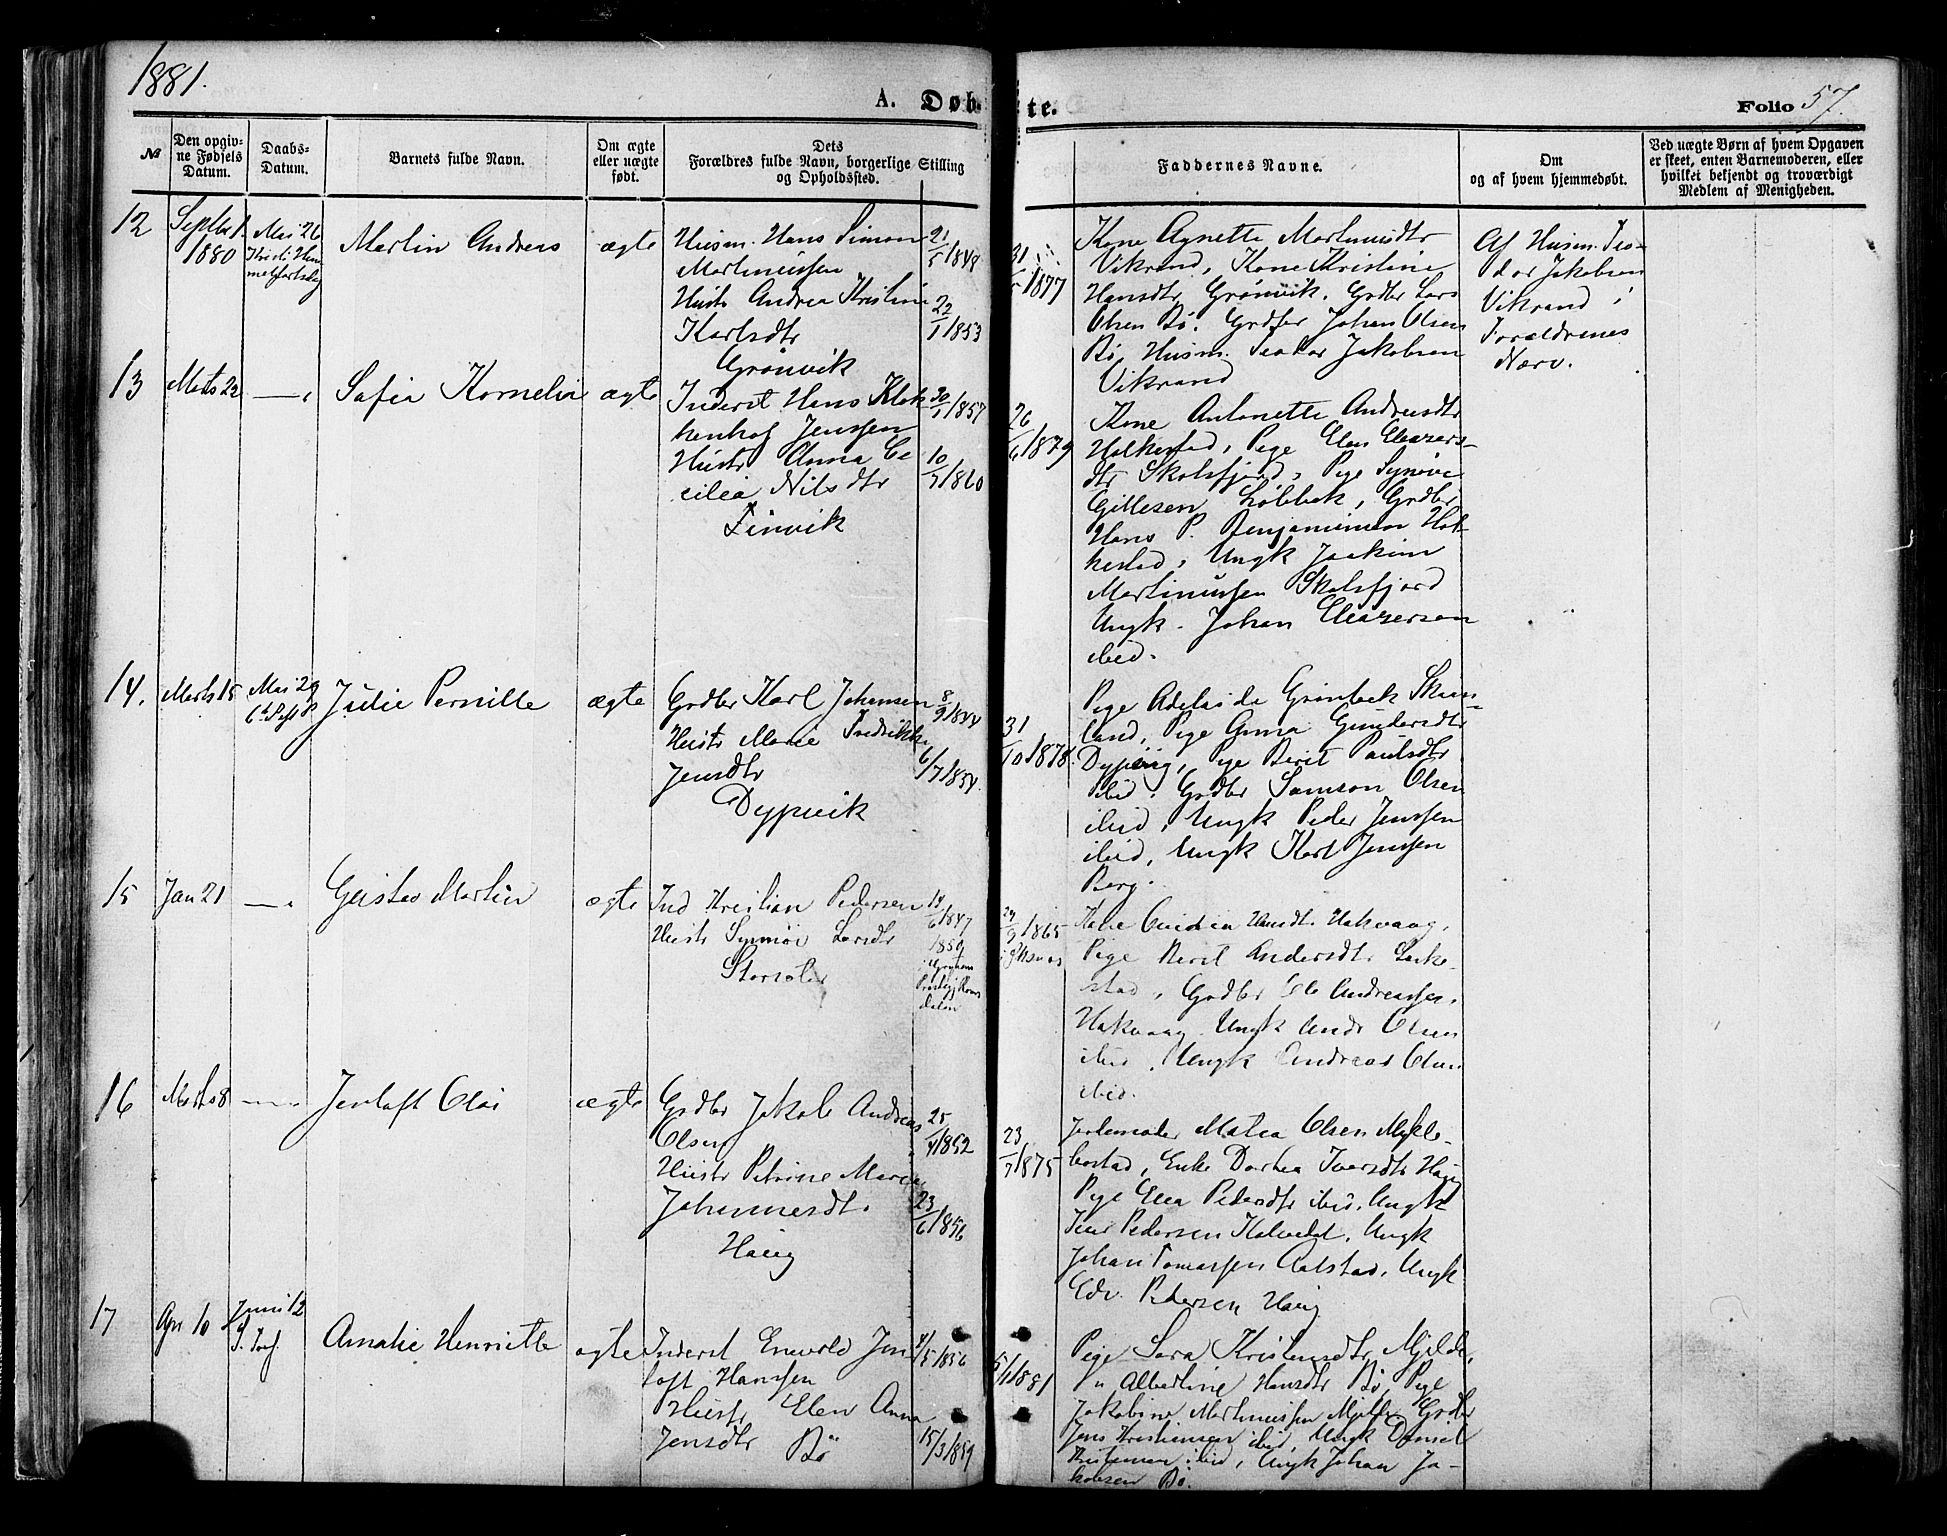 1881.
A. Døb-
te.
Folio 57.
№
Den opgiv-
ne Fødsels
Datum.
Daabs-
Datum.
Barnets fulde Navn.
Om ægte
eller uægte
født.
Dets
Forældres fulde Navn, borgerlige Stilling
og Opholdssted.
Faddernes Navne.
Om
og af hvem hjemmedøbt.
Ved uægte Børn af hvem Opgaven
er skeet, enten Barnemoderen, eller
hvilket bekjendt og troværdigt
Medlem af Menigheden.
12
Septbr 1.
1880
Mai 26
Kristi Him
melfartsdag
Martin Andreas
ægte
Husm. Hans Simon
Martinussen
Hustr Andrea Kristine
Karlsdtr
Grønvik
21/5 1848
22/1 1853
31/5 1877
Kone Agnette Martinusdtr
Vikrand, Kone Kristine
Hansdtr Grønvik. Grdbr Lars
Olsen Bø. Grdfor Johan Olsen
Bø, Husm. Teodor Jakobsen
Vikrand
Af Husm. Teo-
dor Jakobsen
Vikrand i
Forældrenes
Nærv.
13
Marts 22
Sofia Kornelia
ægte
Inderst Hans Klok
kenhof Jenssen
Hustr Anna Ce
cilia Nilsdtr
Finvik
30/1 1857
10/7 1860
26/6 1879
Kone Antonette Andreasdtr
Holkestad, Pige Elen Eleazers-
dtr Skotsfjord, Pige Synøve
Gillesen Løbbek, Grdbr
Hans P. Benjaminsen Hol-
kestad, Ungk Joakim
Martinussen Skotsfjord
Ungk. Johan Eleazersen
ibid.
14.
Marts 15
Mai 29
Julie Pernille
ægte
Grdbr Karl Johansen
Hustr Marie Fredrikke
Jensdtr
Dypvik
8/9 1844
6/7 1854.
31/10 1878.
Pige Adelaide Grønbek Skan-
land, Pige Anna Gundersdtr
Dypvig, Pige Berit Paulsdtr
ibid. Grdbr Samson Olsen
ibid, Ungk Peder Jenssen
ibid, Ungk Karl Jenssen
Berg.
15
Jan 21
Gustav Martin
ægte
Ind Kristian Pedersen
Hustr Synnøv Larsdtr
14/6 1847
1859
29/9 1865
Hansdtr Hakvaag,
Pige Berit Andersdtr Lække-
stad, Grdbr Ole Andreassen,
Hakvaag Ungk Andr Olsen
ibid, Ungk Andreas Olsen
ibid.
16
Marts 8
Jentoft Olai
ægte
Grdbr Jakob Andreas
Olsen
Hustr Petrine Marie
Johannesdt.
Haug
25/4 1852
23/6 1856
23/7 1875
Jordemoder Matea Olsen Mykle-
bostad, Enke Dorthea Iversdtr Haug
Pige Elea Pedersdtr ibid, Ungk
Pedersen Kalvedal, Ungk
Johan Tomassen Aalstad, Ungk
Edv. Pedersen Haug
17
Apr 10
Juni 12
Amalie Henriette
ægte
Inderst Enevold Jen
toft Hanssen
Hustr Elen Anna
Jensdtr Bø
4/5 1856
15/3 1859
5/1 1881
Pige Sara Kristensdtr Mjelde,
" Albertine Hansdtr Bø, Pige
Jakobine Martinussen Mjelde, Grdbr
Jens Kristensen ibid, Ungk Daniel
Kristensen ibid, Ungk Johan Ja-
kobsen Bø.